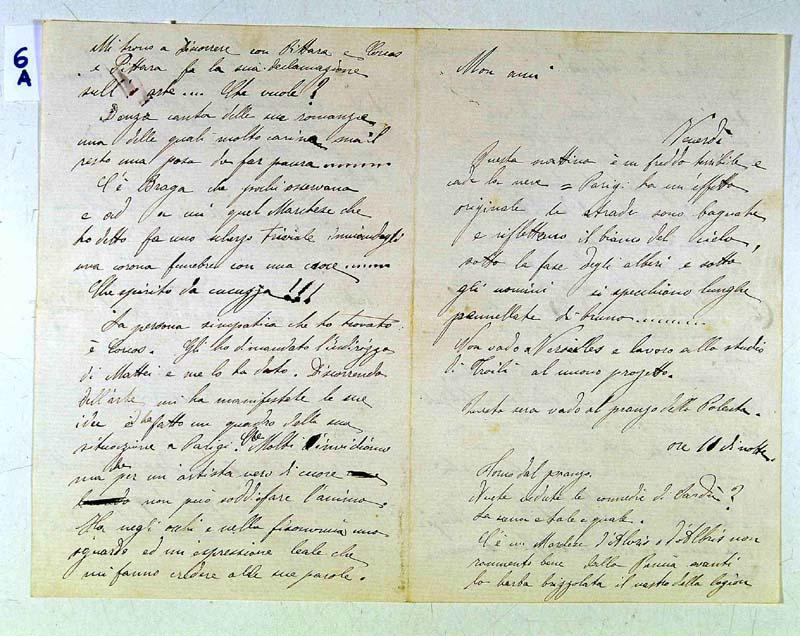 6
A
Mi trovo a discorrere con Pittara e Corcos
e Pittara fa la sua declamazione
sull'arte... Che vuole?
Denza canta delle sue romanze
una delle quali molto carina, ma il
resto una posa da far paura.........
C'è Braga che pochi osservano
e ad un quel Marchese che
ho detto fa uno scherzo triviale inviandogli
una corona funebre con una croce.........
Che spirito da cucuzza!!!
La persona simpatica che ho trovato
è Corcos. Gli ho dimandato l'indirizzo
di Mattei e me lo ha dato. Discorrendo
dell'arte mi ha manifestate le sue
idee ed ha fatto un quadro della sua
situazione a Parigi. Che Molti invidiano
ma che per un artista vero di cuore
non può soddisfare l'animo.
Ha negli occhi e nella fisonomia uno
sguardo ed un'espressione leale che
mi fanno credere alle sue parole.
Mon ami
Venerdì
Questa mattina è un freddo terribile e
cade la neve = Parigi ha un'effetto
originale le strade sono bagnate
e riflettono il bianco del cielo,
sotto la fase degli alberi e sotto
gli uomini si specchiano lunghe
pennellate di bruno.........
Non vado a Versailles e lavoro allo studio
di Troili al nuovo progetto.
Questa sera vado al pranzo della Polenta.
ore 11 di notte.
Torno dal pranzo.
Avete vedute le comedie di Sardou?
La scena è tale e quale.
C'è un Marchese d'Alvis o d'Albis non
rammento bene dalla Pancia avanti
la barba brizzolata il nastro della legion